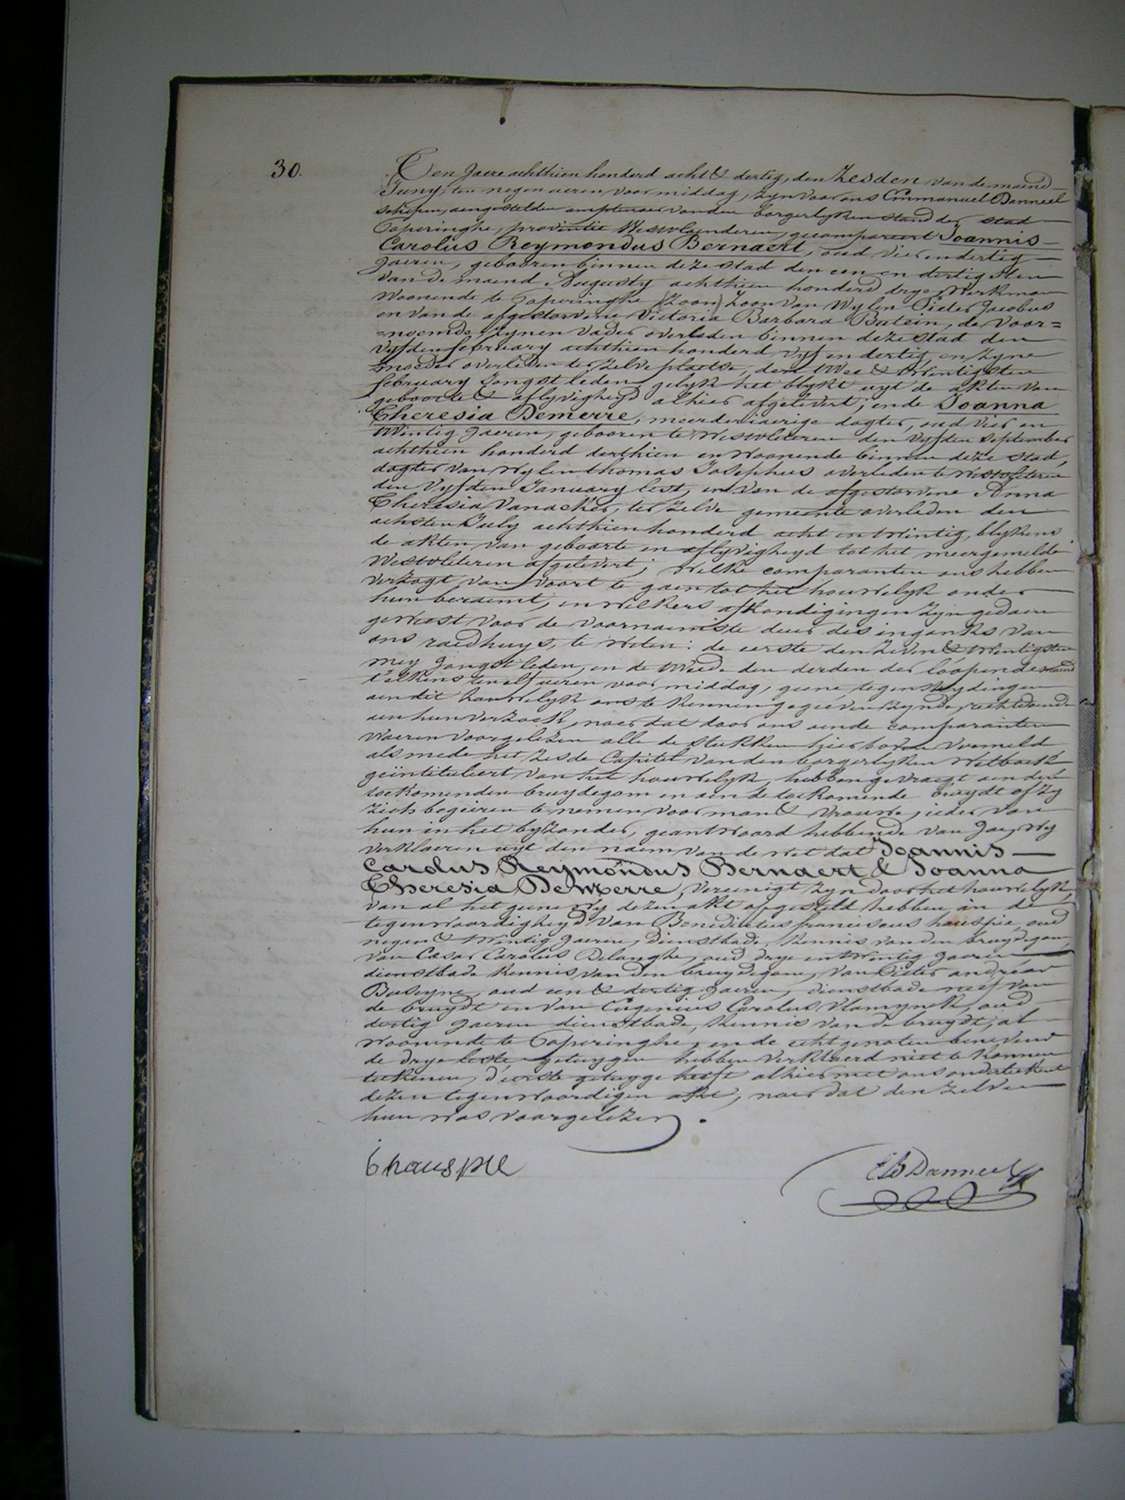 30.
Een Jaere achthien honderd acht & dertig, den Zesden van de maend
Juny, ten negen ueren voormiddag, zyn voor ons Emmanuel Danneel
schepen, aengestelden amptenaer van den borgerlyken stand der stad
Poperinghe, provintie Westvlaenderen, gecompareert Joannis
Carolus Reymondus Bernaert, oud vier en dertig
Jaeren, gebooren binnen deze stad den een en dertigsten
van de maend Augusty achthien honderd drye, Werkman
Woonende te Poperinghe (Zoon) Zoon van Wylen Pieter Jacobus
en van de afgestorvene Victoria Barbara Butein, de voor=
=noemde zynen vader overleden binnen deze stad den
vyfden february achthien honderd vyf en dertig, en zyne
moeder overleden te zelve plaetse, den twee & twintigsten
february Jongst leden, gelyk het blykt uyt de akten van
geboorte & aflyvigheyd alhier afgelevert; ende Joanna
Theresia Dewerre, meerderjaerige dogter, oud vier en
twintig Jaeren, gebooren te Westvleteren den vyfden september
achthien honderd derthien en woonende binnen deze stad,
dogter van Wylen thomas Josephus overleden te Westvleteren
den vyfden January lest, en van de afgestorvene Anna
Theresia Vanacker, ter zelve gemeente overleden den
achsten July achthien honderd acht en twintig, blykens
de akten van geboorte en aflyvigheyd tot het meergemelde
Westvleteren afgelevert; Welke comparanten ons hebben
verzogt van voort te gaen tot het houwelyk onder
hun beraemt, en welkers afkondigingen zyn gedaen
geweest voor de voornaemste deur des inganks van
ons raedhuys, te weten: de eerste den zeven & twintigsten
mey Jongst leden, en de tweede den derden der loopende maend
t'elkens ten elf ueren voormiddag, geene tegenstrydingen
aen dit houwelyk ons te kennen gegeven zynde, rechtdoende
aen hun verzoek, naer dat door ons aende comparanten
waeren voorgelezen alle de stukken hier boven vermeld
als mede het zesde Capitel van den borgerlyken Wetboek
geïntituleert van het houwelyk, hebben gevraegt aen den
toekomenden bruydegom en aen de toekomende bruydt of zy
zich begeeren te nemen voor man & vrouwe; ieder van
hun in het byzonder, geantwoord hebbende van Jae, Wy
verklaeren uyt den naem van de wet dat Joannis
Carolus Reymondus Bernaert & Joanna
Theresia Dewerre, vereenigt zyn door het houwelyk,
van al het geene Wy dezen akt opgesteld hebben in de
tegenwoordigheyd van Benedictus franciscus hauspie, oud
negen & twintig Jaeren, dienstbode, kennis van den bruydegom,
van Cesar Carolus Delanghe, oud drye en twintig Jaeren
dienstbode kennis van den bruydegom, van Pieter andreas
oud een & dertig Jaeren, dienstbode neef van
de bruydt en van Eugenius Carolus Vlamynck, oud
dertig Jaeren dienstbode, kennis van de bruydt; al
woonende te Poperinghe, en de echtgenoten benevens
de drye leste getuygen hebben verklaerd niet te konnen
teekenen, d'eerste getuyge heeft alhier met ons onderteekent
dezen tegenwoordigen akt, naer dat den zelven
hun was voorgelezen.
b hauspie
Danneel